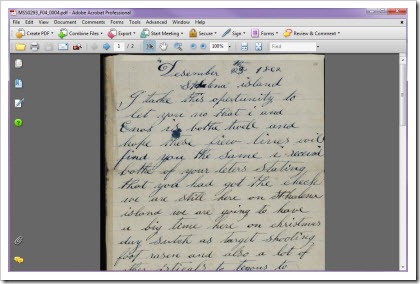 MSS0293_F04_0004.pdf - Adobe Acrobat Professional
File Edit View Document Comments Forms Tools Advanced Window Help
Create PDF Combine Files Export Start Meeting Secure Sign Forms Review & Comment
1 / 2 100% Find
Desember 1862
island
I take this opertunity to
let you no that i and
Enos is bothe well and
hope these few lines will
find you the same i receivd
bothe of your leters stating
that you had got the check
we are still here on Sthelena
island we are going to have
a big time here on christmas
day sutch as target shooting
foot rasen and also a lot of
to